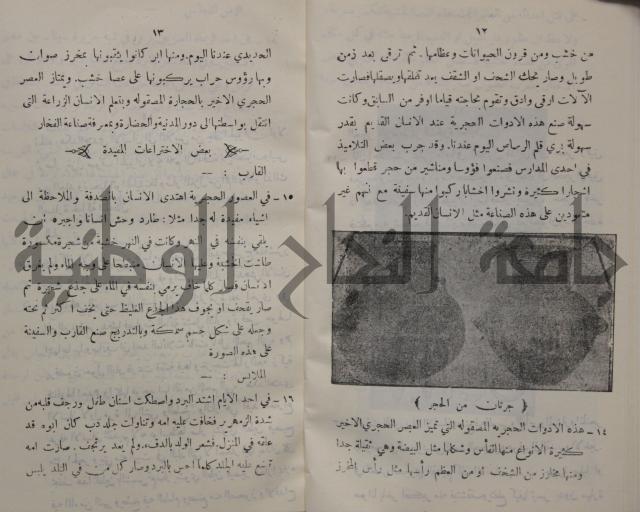 ١٢
من خشب ومن قرون الحيوانات وعظامها . ثم ترقى بعد زمن
طويل وصار يحك الشحف او الشقف بعد تفلقها ويصقلها فصارت
الآلات ارقى وادق وتقوم بحاجته قياما اوفر من السابق وكانت
سهولة صنع هذه الادوات الحجرية عند الانسان القديم بقدر
سهولة بري قلم الرساس اليوم عندنا. وقد جرب بعض التلاميذ
في احدى المدارس فصنعوا فؤوسا ومناشير من حجر قطعوا بها
اشجارا كثيرة ونشروا اخشابا ركبوا منها سفينة مع انهم غير
متعودين على هذه الصناعة مثل الانسان القديم.
﴿ جرتان من الحجر ﴾
١٤ – هذه الادوات الحجرية المصقوله التي تميز العصر الحجري الاخير
كثيرة الانواع منها الفأس وشكلها مثل البيضة وهي ثقيلة جدا
ومنها مخارز من الشحف او من العظم رأسها مثل رأس المخرز
١٣
الحديدي عندنا اليوم. ومنها ابر كانوا يثقبونها بمخرز صوان
وبها رؤوس حراب يركبونها على عصا خشب. ويمتاز العصر
الحجري الاخير بالحجارة المصقوله وبتعلم الانسان الزراعة التي
انتقل بواسطتها الى دور المدنية والحضارة وبمعرفة صناعة الفخار
بعض الاختراعات المفيدة
القارب : —
١٥ – في العصور الحجرية اهتدى الانسان بالصدفة والملاحظة الى
اشياء مفيدة له جدا مثلا : طارد وحش انسانا واجبره ان
يلقي بنفسه في النهر وكانت في النهر خشبة من شجرة مكسورة
طائشة الخشبة وعليها الانسان على وجه الماء ولم يغرق
الانسان فصار كلما خاف يرمي بنفسه في الماء على جذع شجرة ثم
صار يقحف او يجوف هذا الجذع الغليظ حتى يخف اكثر ثم نحته
وجعله على شكل جسم سمكة وبالتدريج صنع القارب والسفينة
على هذه الصورة
الملابس : —
١٦ – في احد الايام اشتد البرد واصطكت اسنان طفل ورجف قلبه من
شدة الزمهرير فخافت عليه امه وتناولت جلد دب كان ابوه قد
علقه في المنزل فشعر الولد بالدفء. ولم يعد يرتجف . صارت امه
تضع عليه الجلد كلما احس بالبرد وصار كل من في البلد يلبس
جامعة النجاح الوطنية